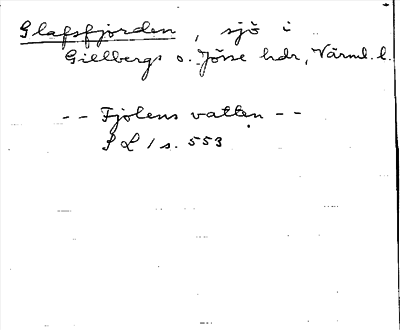 Glafsfjorden, sjö i
Gillbergs o. Jösse hdr, Värml. l.
-- Fjolens vatten --
S L 1 s. 553